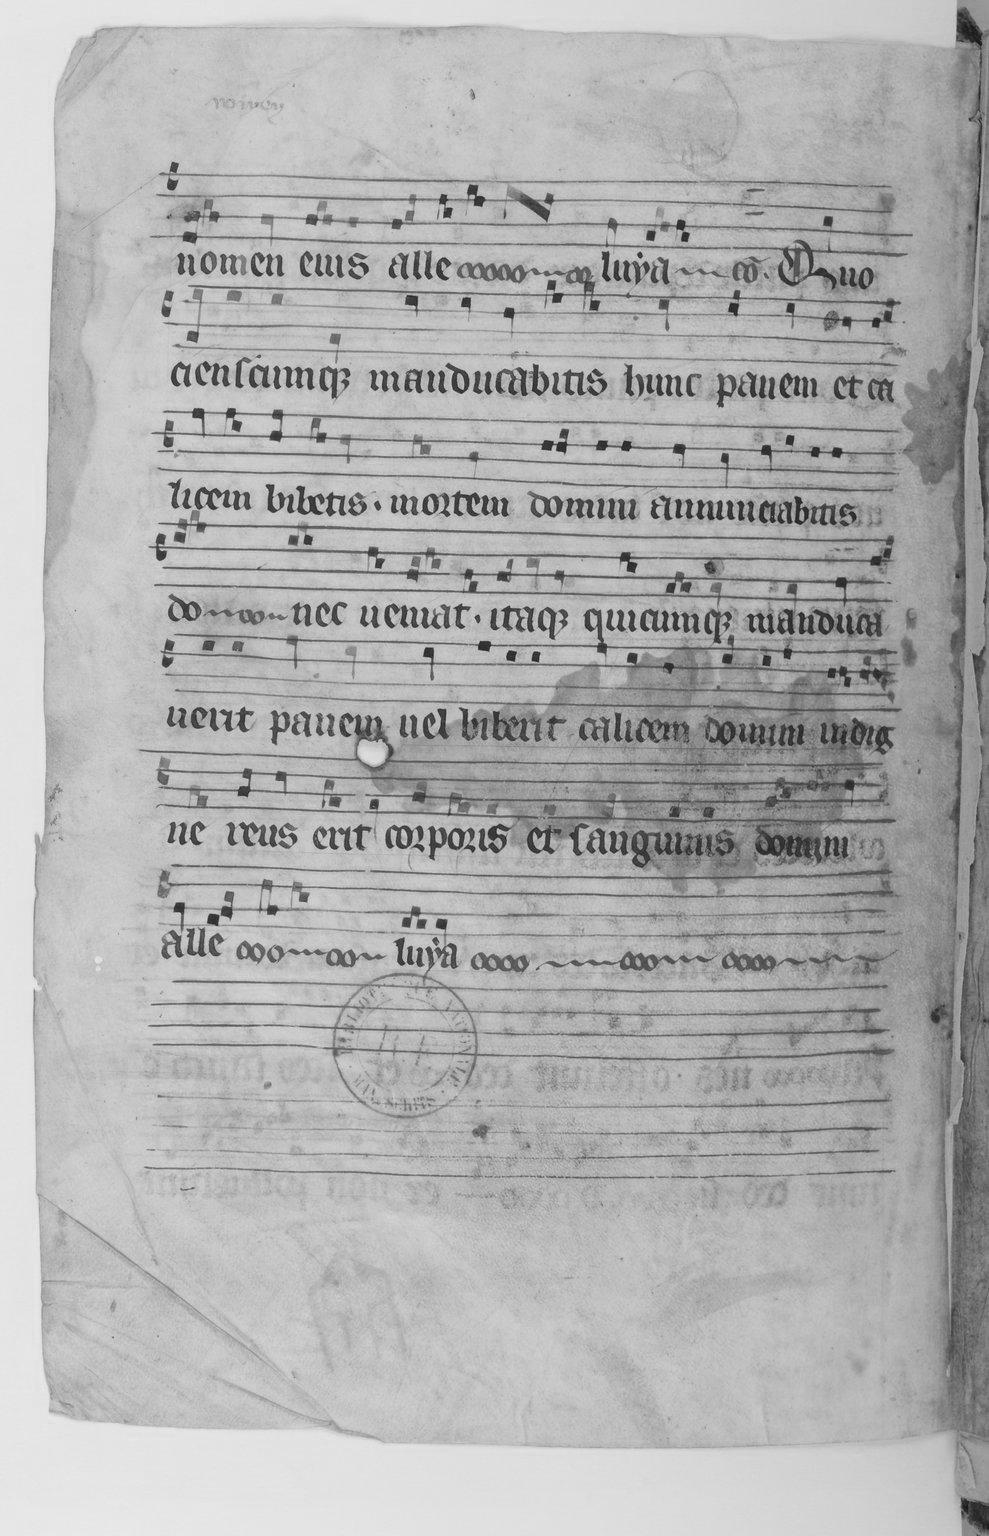 nomen eius alle luÿa cō. Quo
cienscumqꝫ manducabitis hunc panem et ca
licem bibetis · mortem domini annunciabitis
do nec ueniat · itaqꝫ quicumqꝫ manduca
uerit panem uel biberit calicem domini indig
ne reus erit corporis et sanguinis domini
alle luÿa